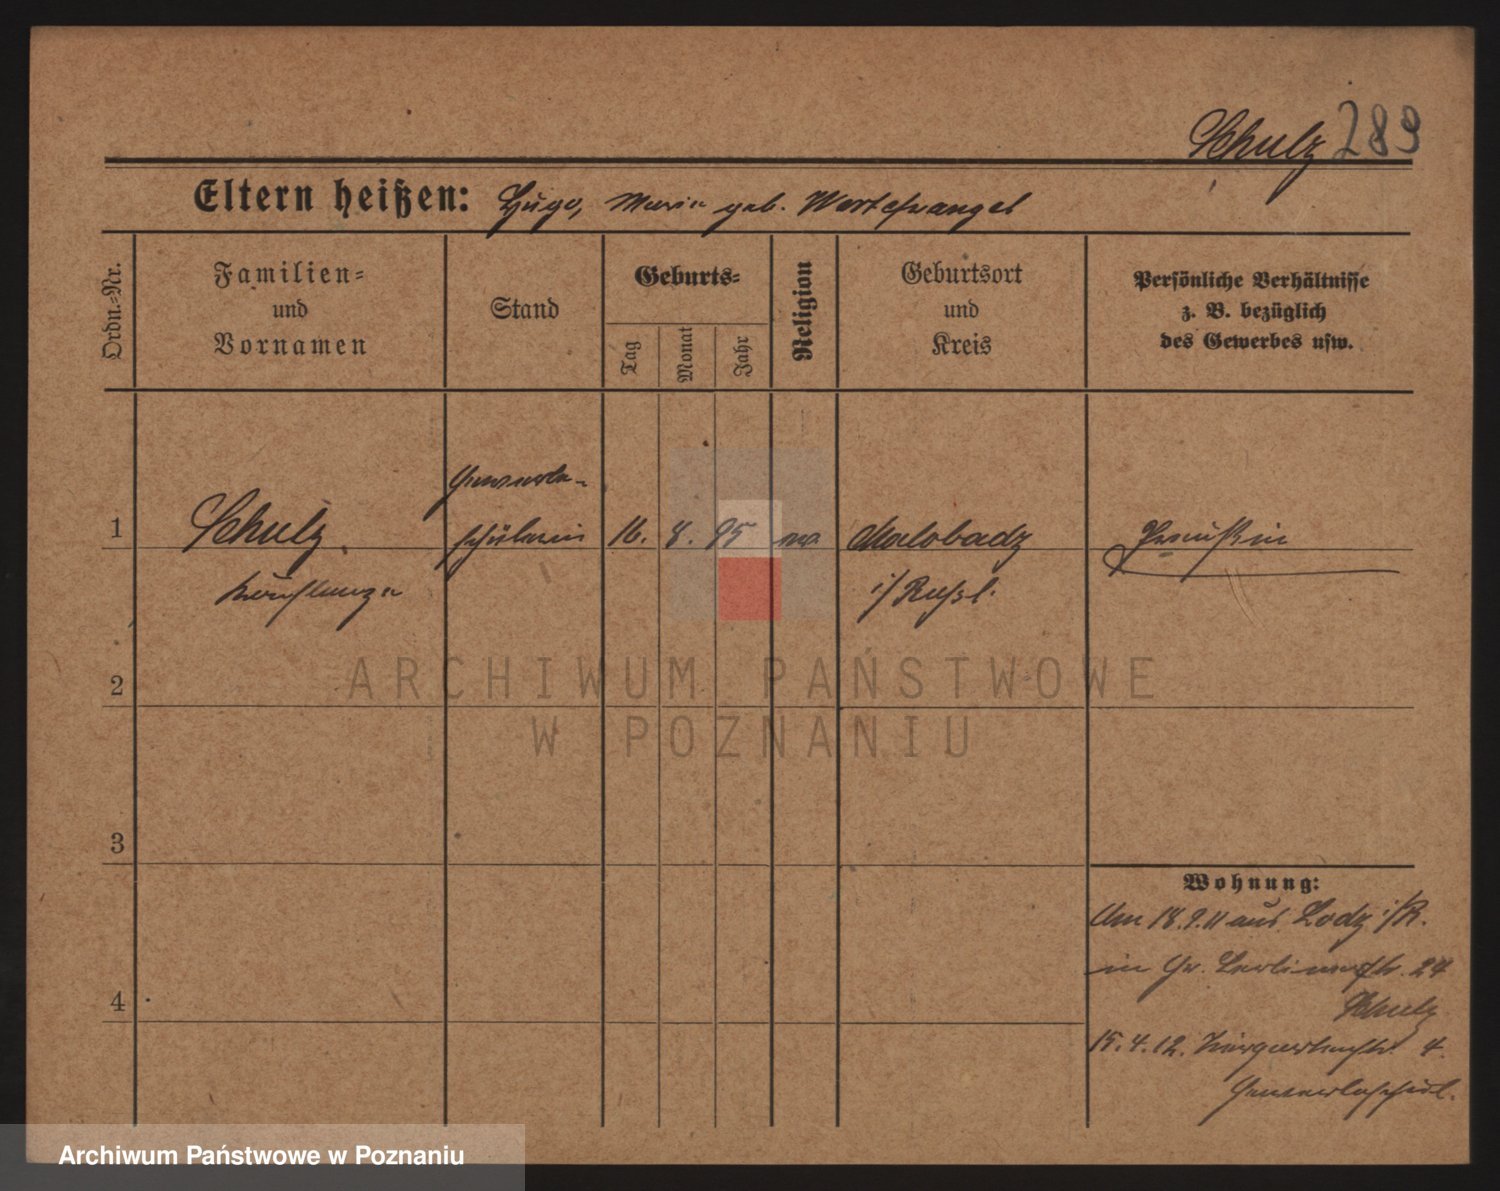 Schulz 289
Eltern heißen: Hugo, Maria geb. Wortchrangel
Ordn.-Nr.
Familien-
und
Vornamen
Stand
Geburts-
Tag
Monat
Jahr
Religion
Geburtsort
und
Kreis
Persönliche Verhältnisse
z. B. bezüglich
des Gewerbes usw.
Gewerbe-
1 Schulz, schülerin 16. 8. 95 Malobadz Preußin
i/ Rußl.
2
3
4
Wohnung:
Am 18.9.11 aus Lodz i/R.
in Gr. Berlinerstr. 24
Schulz
15.4.12. 4.
Gewerbeschül.
ARCHIWUM PAŃSTWOWE
W POZNANIU
Archiwum Państwowe w Poznaniu